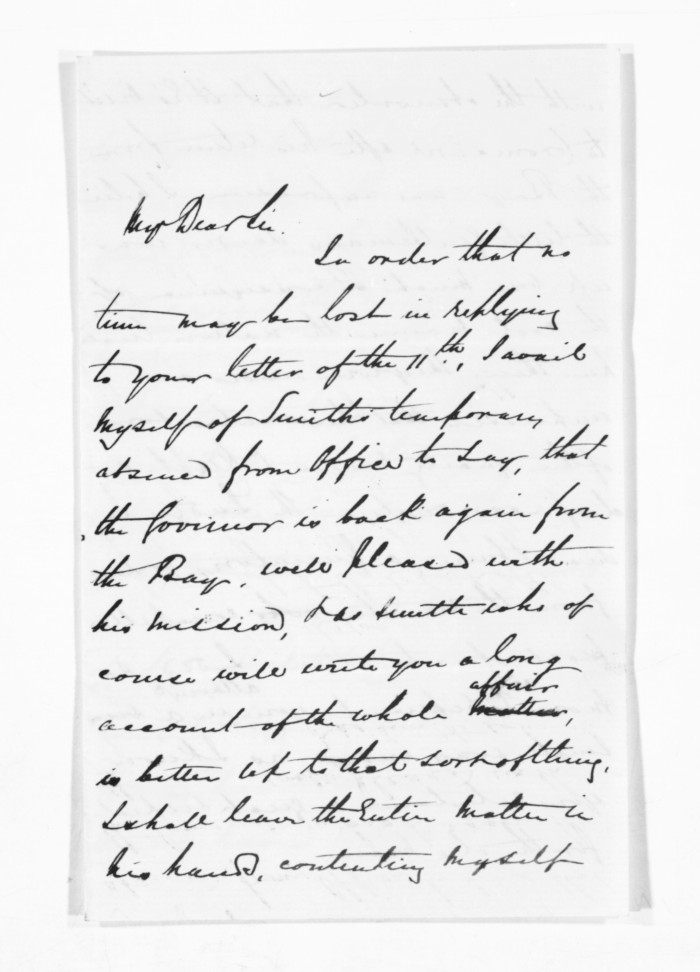 My Dear Sir.
In order that no
time may be lost in replying
to your letter of the 11th, I avail
myself of Smith's temporary
absence from Office to say, that
the Governor is back again from
the Bay, well pleased with
his mission, & as Smith who of
course will write you a long
account of the whole affair
matter,
is better up to that sort of thing,
I shall leave the Entire Matter in
his hands, contenting myself